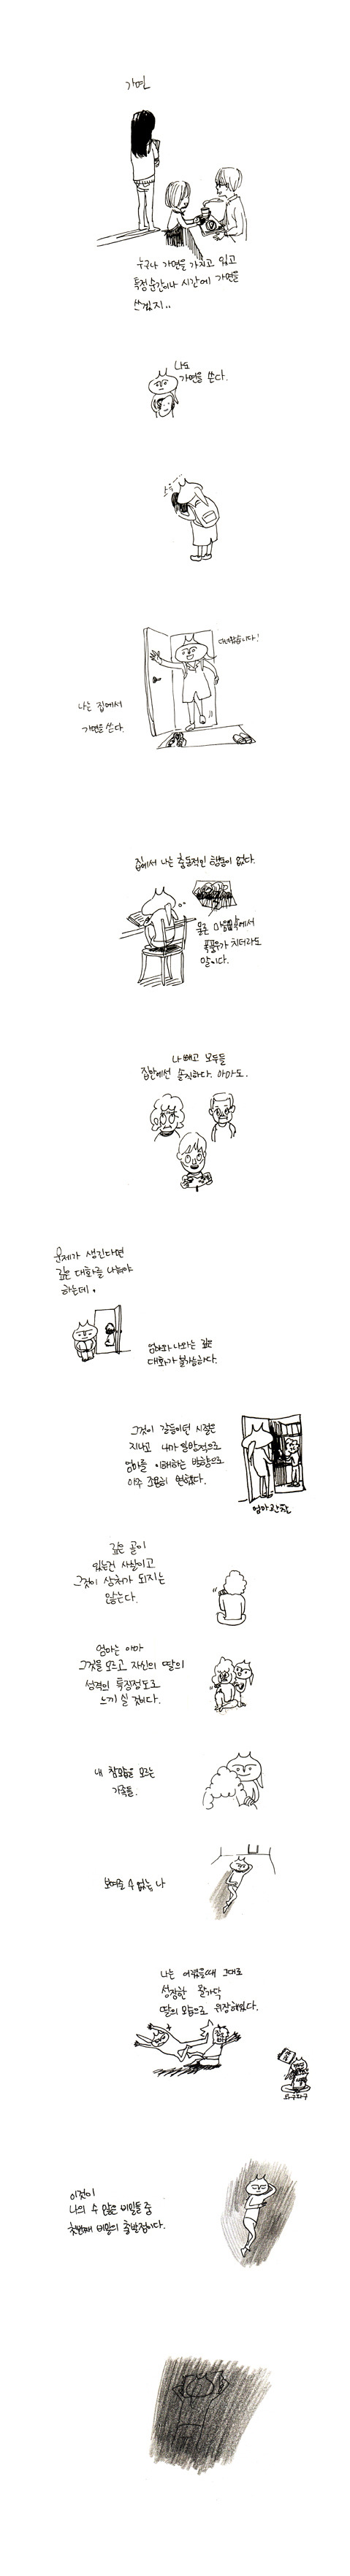 가면
누구나 가면을 가지고 있고
특정순간이나 시간에 가면을
쓰겠지..
나도
가면을 쓴다.
다녀왔습니다!
나는 집에서
가면을 쓴다.
집에서 나는 충동적인 행동이 없다.
물론 마음속에서
폭풍우가 치더라도
말이다.
나 빼고 모두들
집안에선 솔직하다. 아마도.
문제가 생긴다면
깊은 대화를 나눠야
하는데.
엄마와 나와는 깊은
대화가 불가능하다.
그것이 갈등이던 시절은
지나고 내가 일방적으로
엄마를 이해하는 방향으로
아주 조용히 변했다.
엄마관찰
깊은 골이
있는건 사실이고
그것이 상처가 되지는
않는다.
엄마는 아마
그것을 모르고 자신의 딸의
성격의 특징정도로
느끼실 것이다.
내 참모습을 모르는
가족들.
보여줄 수 없는 나
나는 어렸을때 그대로
성장한 말가닥
딸의 모습으로 위장해있다.
이것이
나의 수 많은 비밀들 중
첫번째 비밀의 출발점이다.